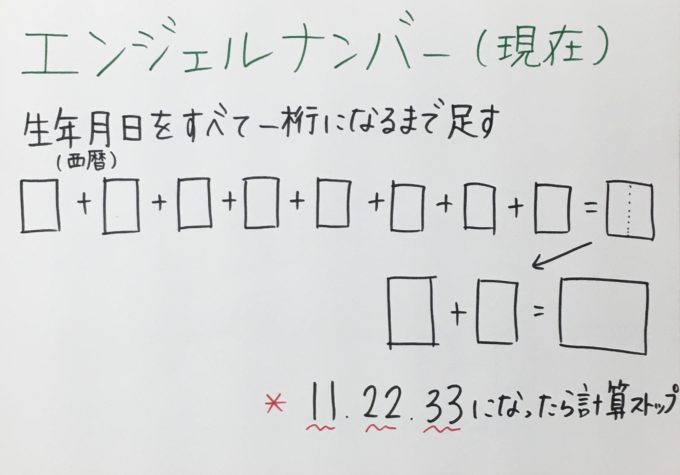 エンジェルナンバー(現在)
生年月日をすべて一桁になるまで足す
(西暦)
□+□+□+□+□+□+□+□=□
□+□=□
* 11.22.33になったら計算ストップ